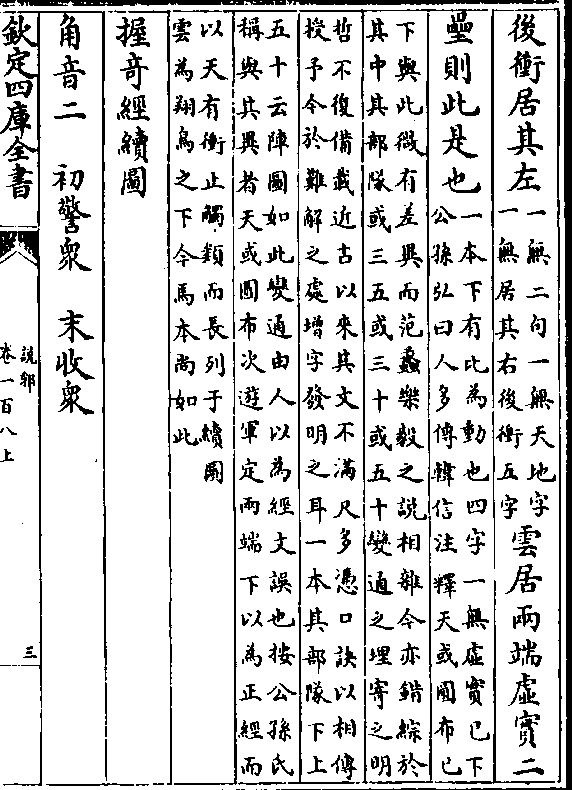 後衝居其左
一無二句一無天地字
一無居其右後衝五字
雲居兩端虛實二
壘則此是也
一本下有此為動也四字一無虛實已下
公孫弘曰人多傳韓信注釋天或圓布已
下與此微有差異而范蠡樂毅之說相雜今亦錯綜於
其中其部隊或三五或三十或五十變通之理寄之明
哲不復備載近古以來其文不滿尺多憑口訣以相傳
授予今於難解之處增字發明之耳一本其部隊下上
五十云陣圖如此變通由人以為經文誤也按公孫氏
稱與其異者天或圓布次遊軍定兩端下以為正經而
以天有衝止觸類而長列于續圖
雲為翔鳥之下今馬本尚如此
握奇經續圖
角音二　初警衆　末收衆
欽定四庫全書
說郛
卷一百八上
三